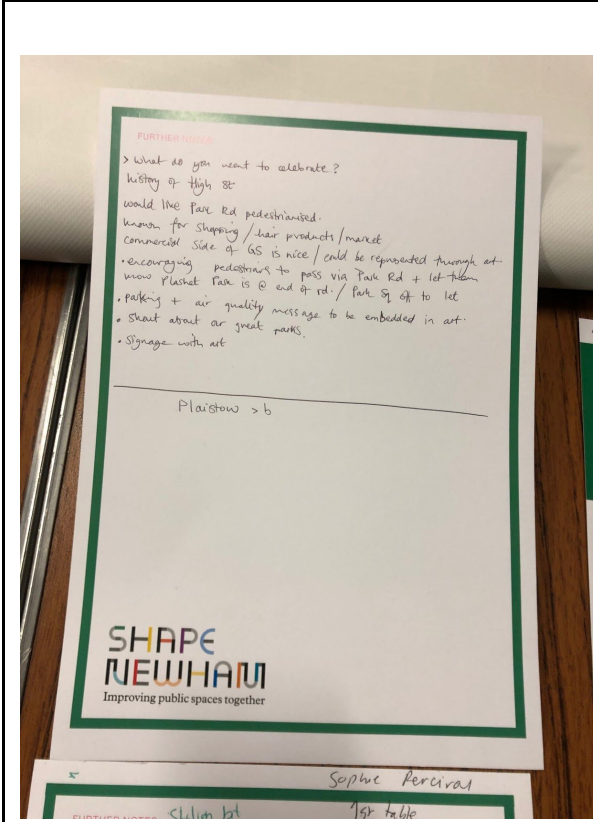 FURTHER NOTES
> What do you want to celebrate?
history of High St
would like Park Rd pedestrianised.
known for shopping / hair products / market
commercial side of GS is nice / could be represented through art
• encouraging pedestrians to pass via Park Rd + let them
know Plashet Park is @ end of rd. / Park Sq off to let
• parking + air quality message to be embedded in art.
• shout about our great parks.
• signage with art
Plaistow > b
SHAPE
NEWHAM
Improving public spaces together
Sophie Percival
FURTHER NOTES
1st table